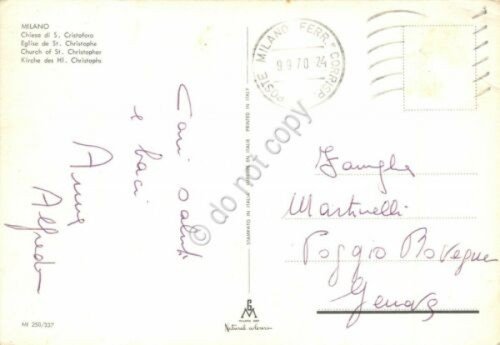 MILANO
Chiesa di S. Cristoforo
Eglise de St. Christophe
Church of St. Christopher
Kirche des Hl. Christophs
POSTE MILANO FERR - CORRISP
9 9 70 - 24
Cari saluti
e baci
Anna
Alfredo
STAMPATO IN ITALIA PRINTED IN ITALY
do not copy
Famiglia
Martinelli
Poggio
Genova
MI 250/337
Natural colour